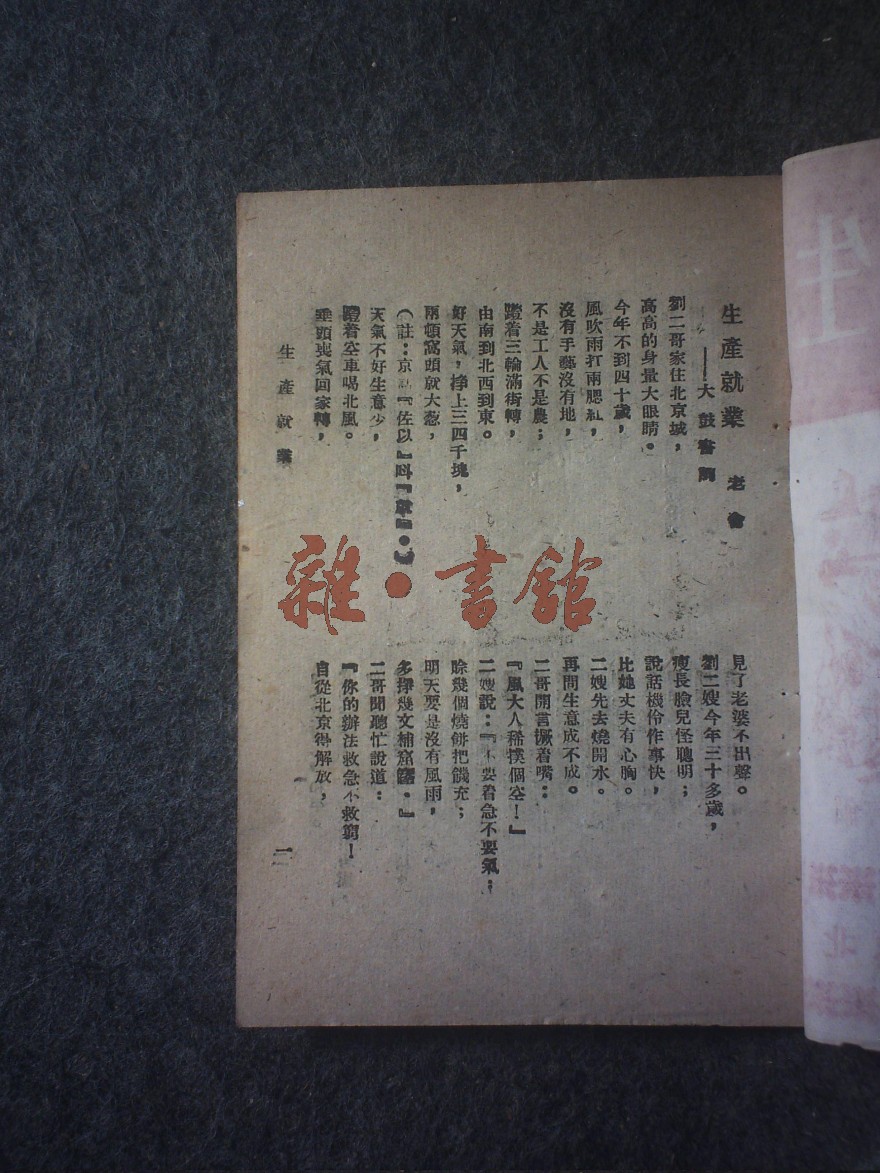 生產就業
——大鼓書詞
老舍
劉二哥家住北京城，
高高的身量大眼睛。
今年不到四十歲，
風吹雨打兩腮紅，
沒有手藝沒有地，
不是工人不是農；
蹬着三輪滿街轉，
由南到北西到東。
好天氣，掙上三四千塊，
兩頓窩頭就大葱，
（註：京 『佐以』叫『就』。）
天氣不好生意少，
蹬着空車喝北風。
垂頭喪氣回家轉，
見了老婆不出聲。
劉二嫂今年三十多歲，
瘦長臉兒怪聰明；
說話機伶作事快，
比她丈夫有心胸。
二嫂先去燒開水。
再問生意成不成。
二哥開言撅着嘴：
『風大人稀撲個空！』
二嫂說：『不要着急不要氣；
賒幾個燒餅把饑充；
明天要是沒有風雨，
多掙幾文補窟窿。』
二哥聞聽忙說道：
『你的辦法救急不救窮！
自從北京得解放，
生產就業
一
雜·書館
生
北